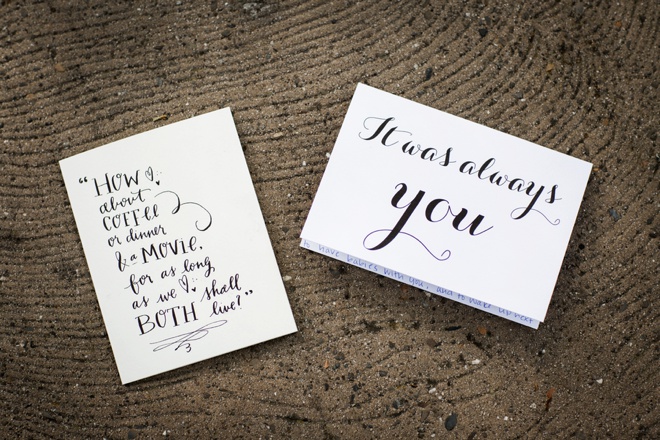 “HOW
about
COFFEE
or dinner
& a MOVIE,
for as long
as we shall
BOTH live?”
It was always
you
to have babies with you, and to wake up next